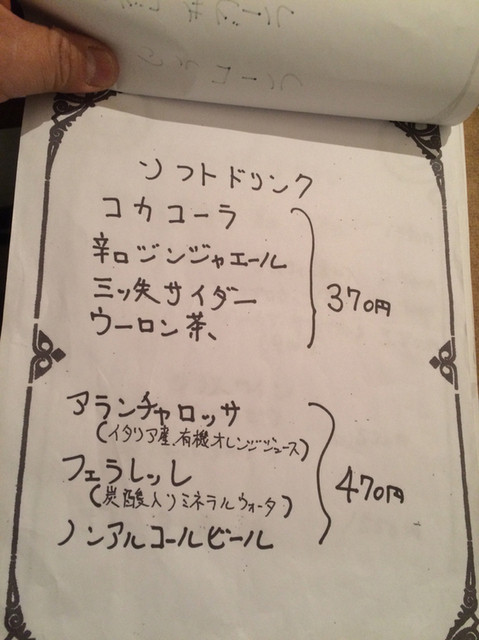 ソフトドリンク
コカコーラ
辛口ジンジャエール
三ッ矢サイダー
ウーロン茶、
370円
アランチャロッサ
(イタリア産有機オレンジジュース)
フェラレッレ
(炭酸入りミネラルウォータ)
ノンアルコールビール
470円